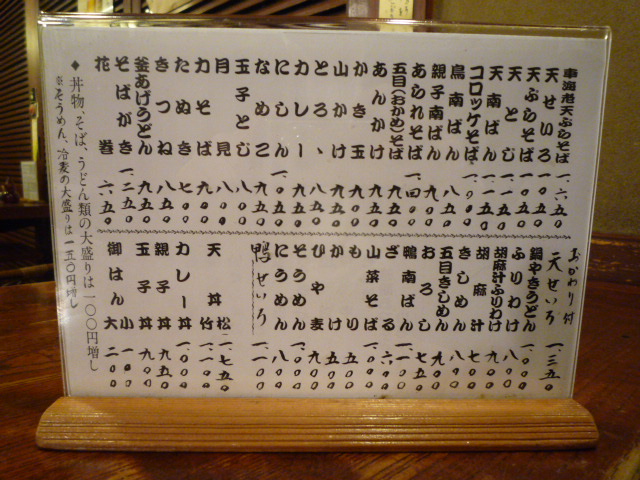 車海老天ぷらそば 一、六五〇
天せいろ 一、一五〇
天ぷらそば 一、一五〇
天とじ 一、一五〇
天南ばん 一、一五〇
コロッケそば 一、〇〇〇
鳥南ばん 八五〇
親子南ばん 九〇〇
あられそば 一、四〇〇
五目(おかめ)そば 九五〇
あんかけ 九五〇
かき玉 八五〇
山かけ 九五〇
とろゝ 八五〇
カレー 九五〇
にしん 一、〇五〇
なめこ 九五〇
玉子とじ 八〇〇
月見 八〇〇
力そば 九〇〇
たぬき 七〇〇
きつね 八五〇
釜あげうどん 九五〇
そばがき 一、二五〇
花巻 六五〇
おかわり付
天せいろ 一、三五〇
鍋やきうどん 一、〇〇〇
ふりわけ 八〇〇
胡麻汁ふりわけ 九〇〇
胡麻汁 七〇〇
きしめん 八〇〇
五目きしめん 九〇〇
おろし 七五〇
鴨南ばん 一、一〇〇
ざる 六〇〇
山菜そば 八〇〇
もり 五〇〇
かけ 五〇〇
ひや麦 九〇〇
そうめん
にうめん 八〇〇
鴨せいろ 一、一〇〇
天丼 松 一、七五〇
竹 一、一〇〇
カレー丼
親子丼 九五〇
玉子丼 九〇〇
御はん 大 二〇〇
小 一〇〇
◆丼物、そば、うどん類の大盛りは一〇〇円増し
※そうめん、冷麦の大盛りは一五〇円増し